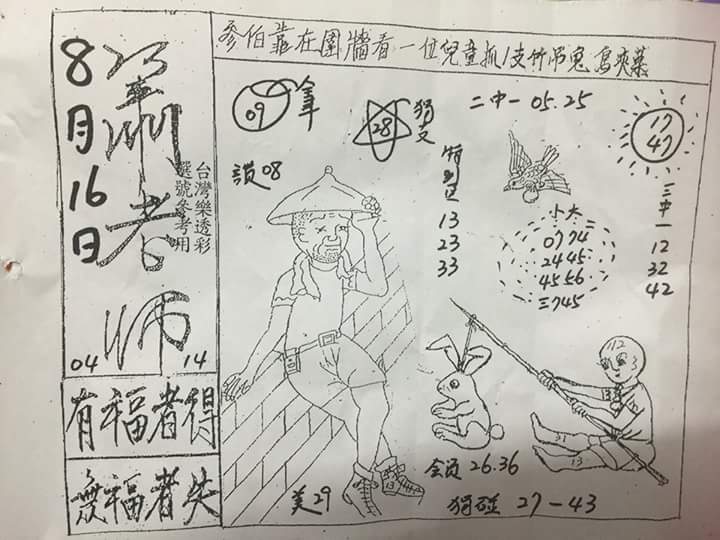 8月16日
蕭老師
台灣樂透彩
選號參考用
04
14
有福者得
無福者失
爹伯靠在圍牆看一位兒童抓1支竹吊兔鳥夾葉
09
28
二中一 05.25
17
47
讚08
13
23
33
小大
0774
2445
4556
三745
三中一
12
32
42
12
13
31
13
美29
會員 26.36
獨碰 27-43